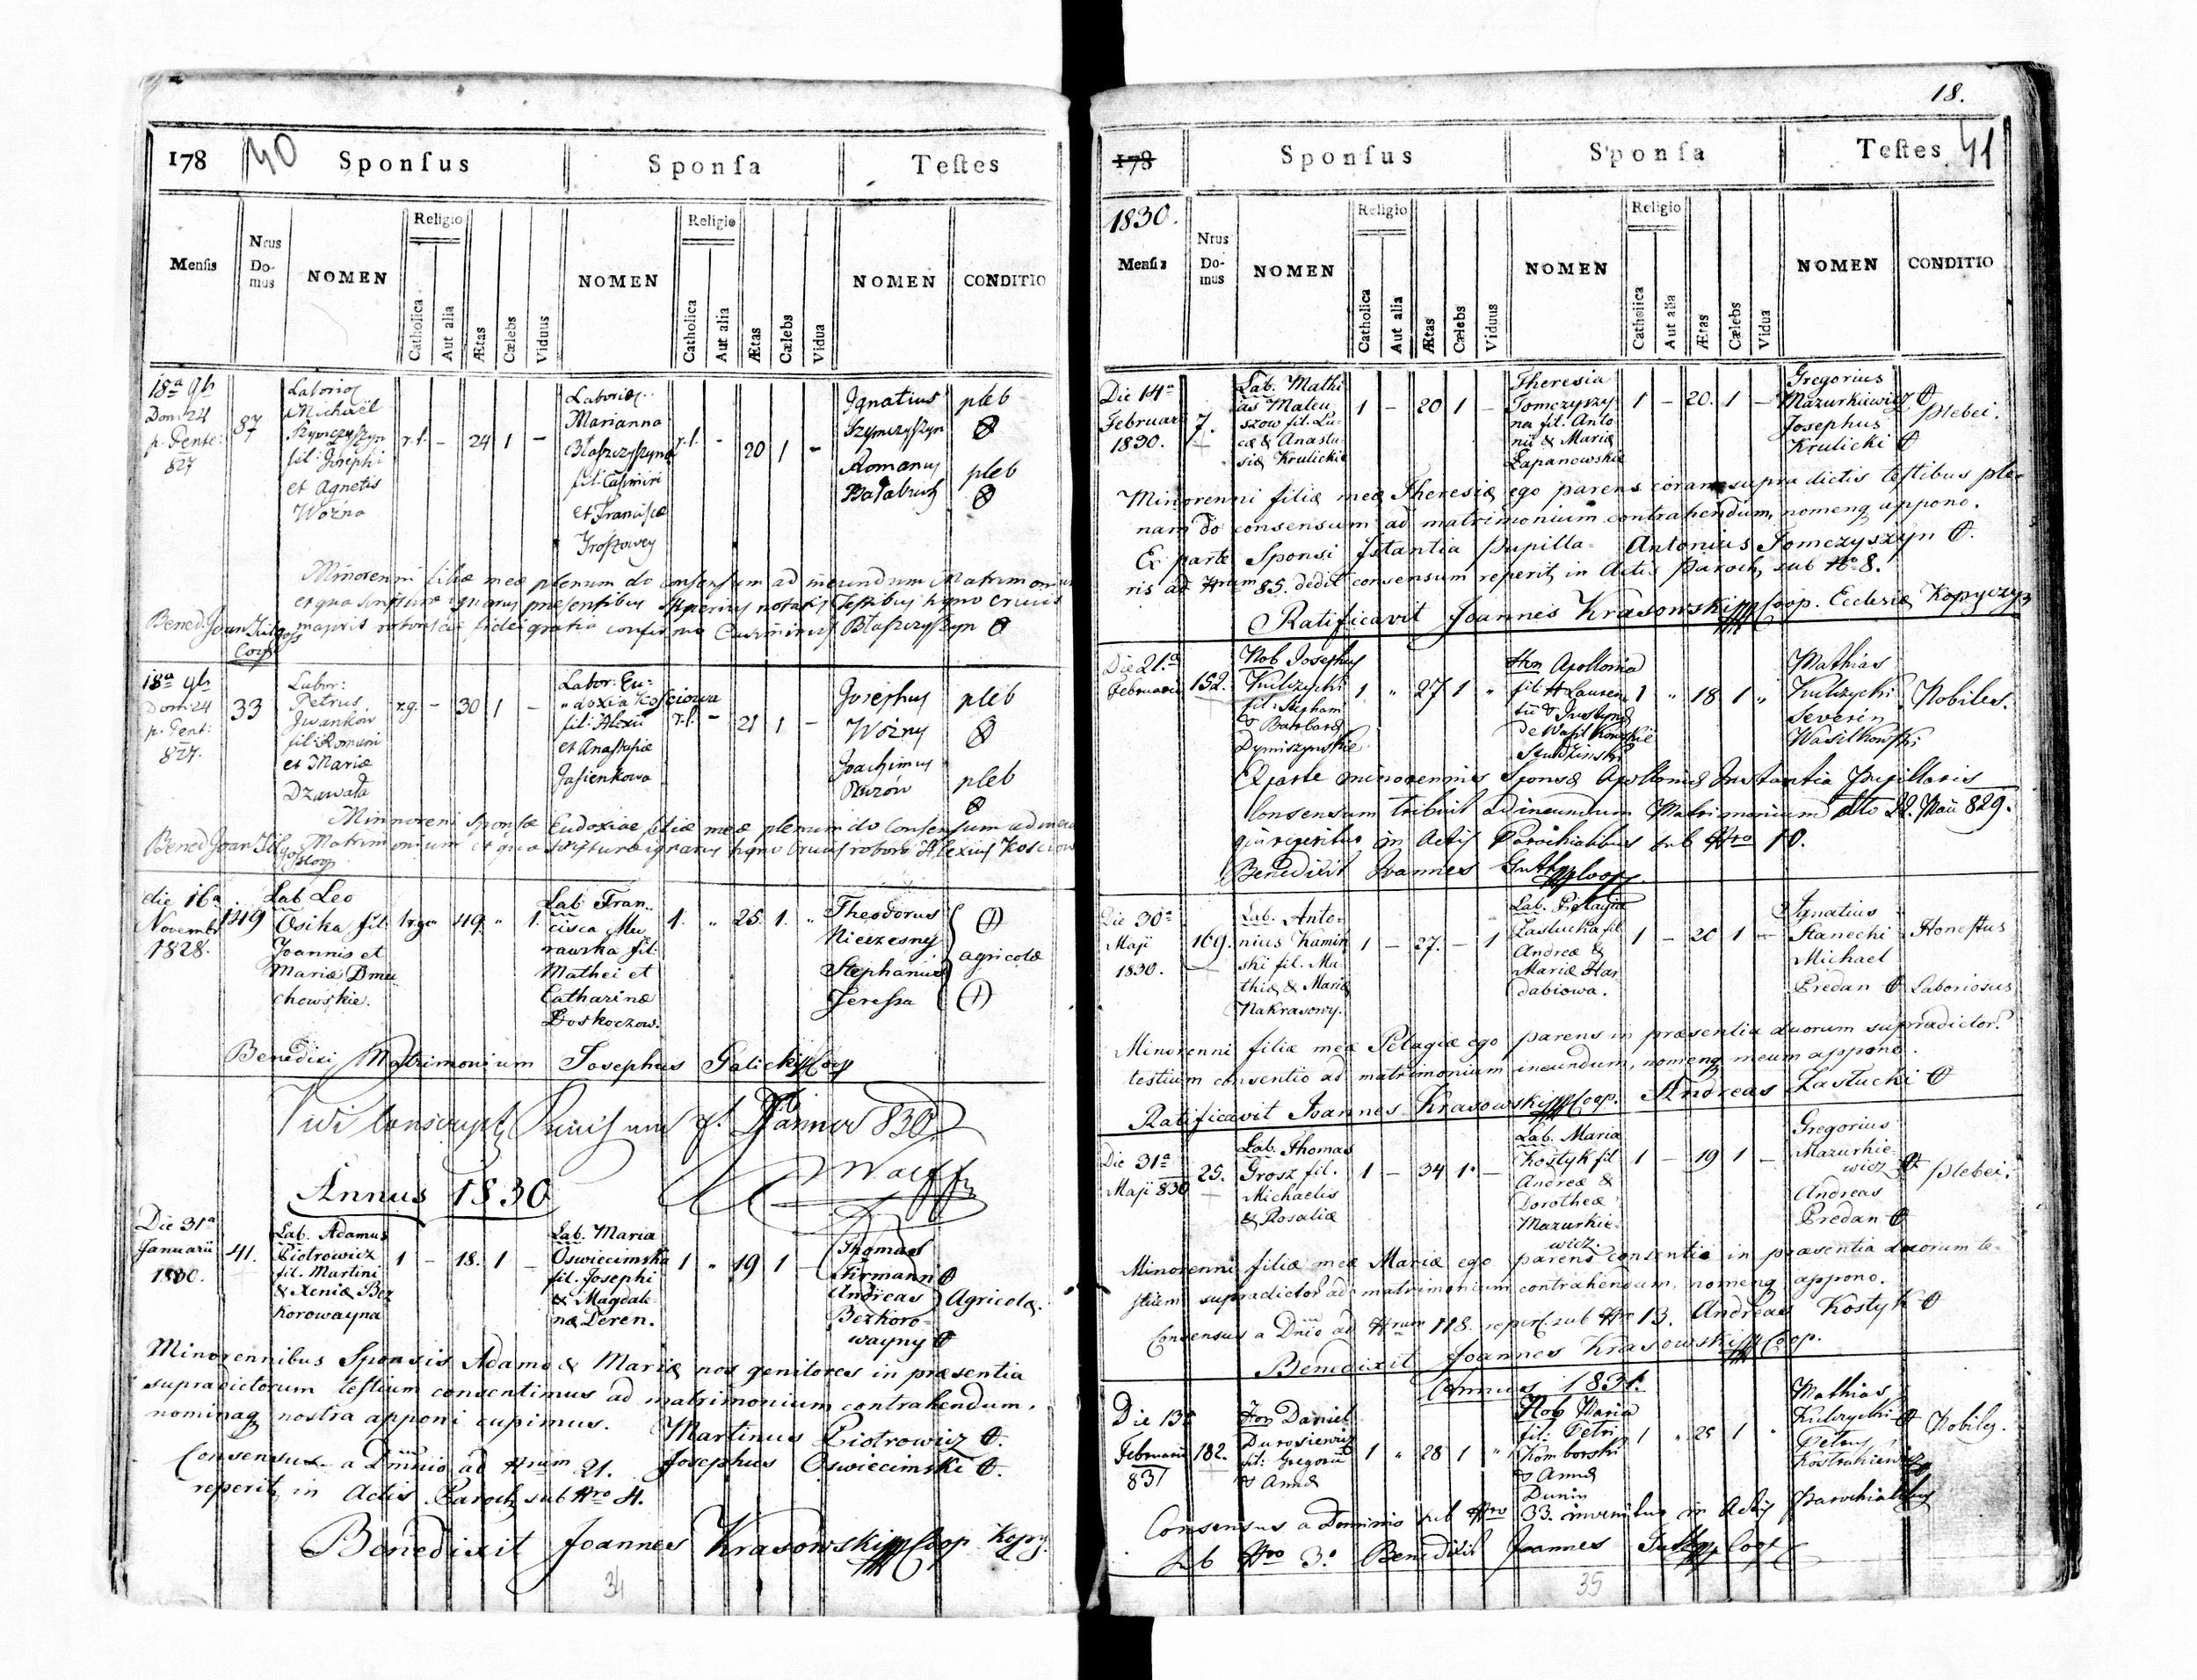 40
178
Sponſus
Sponſa
Teſtes
Menſis
Nrus Do-mus
NOMEN
Religio
Catholica
Aut alia
Ætas
Cælebs
Viduus
NOMEN
Religio
Catholica
Aut alia
Ætas
Cælebs
Vidua
NOMEN
CONDITIO
18a 9br
Dom 24
p. Pente:
827
87
Michaël
fil: Josephi
et Agnetis
Wozna
r.l. - 24 1 -
Marianna
fil: Casimiri
et Francisæ
r.l. - 20 1 -
Ignatius
Szymczyszyn
Romanus
pleb
pleb
Minorenni filiæ meæ plenum do consensum ad ineundum Matrimonium
et qua scripturæ ignarus præsentibus superius notatis Testibus signo crucis
majoris roboris ac fidei gratia confirmo Casimirus Błaszczyszyn
18a 9br
Dom 24
p. Pent:
827.
33
Labor:
Petrus
Iwankow
fil: Romani
et Mariæ
r.g. - 30 1 -
Labor: Eu-
doxia Kosciowa
fil: Alexii
et Anastasiæ
Jasienkowa
r.l. - 21 1 -
Josephus
Wozny
Joachimus
pleb
pleb
Minnoreni sponsæ Eudoxiae filiæ meæ plenum do Consensum ad ineu
Matrimonium et qua scripturæ ignarus signo Crucis roboro Alexius
die 16a
Novembr
1828.
149
Lab Leo
Osika fil.
Joannis et
Mariæ Dmu
chowskie.
49. " 1.
Lab Fran-
cisca Mu
rawska fil.
Mathei et
Catharinæ
Doskoczow.
1. " 25. 1. "
Theodorus
Niezesny
Stephanus
Jeressa
agricolæ
Benedixi Matrimonium Josephus Galicki Coop
Jänner 830
Wolff
Annus 1830
Die 31a
Januarii
1830.
41.
Lab. Adamus
Piotrowicz
fil. Martini
& Xeniæ Bez
korowayna
1 - 18. 1 -
Lab. Maria
Oswiecimska
fil. Josephi
& Magdale
næ Deren.
1 " 19 1 -
Thomas
Firmann
Andreas
Bezkoro-
wayny
Agricolæ.
Minorennibus Sponsis Adamo & Mariæ nos genitores in præsentia
supradictorum testium consentimus ad matrimonium contrahendum,
nominaq nostra apponi cupimus. Martinus Piotrowicz
Consensus a Dominio ad Nrum 21. Josephus Oswiecimski
reperit, in Actis Paroch sub Nro 4.
Benedixit Joannes Krasowski Coop Kopy.
34
18.
41
178
Sponſus
Sponſa
Teſtes
1830.
Menſis
Nrus Do-mus
NOMEN
Religio
Catholica
Aut alia
Ætas
Cælebs
Viduus
NOMEN
Religio
Catholica
Aut alia
Ætas
Cælebs
Vidua
NOMEN
CONDITIO
Die 14a
Februarii
1830.
7.
Lab. Mathi
as Mateu
szow fil. Lu-
cæ & Anasta-
siæ Krulickie
1 - 20 1 -
Theresia
Tomczyszy
na fil. Anto
nii & Mariæ
Łapanowskie
1 - 20. 1 -
Gregorius
Mazurkiewicz
Josephus
Krulicki
plebei.
Minorenni filiæ meæ Theresiæ ego parens coram supra dictis testibus ple-
nam do consensum ad matrimonium contrahendum, nomenq appono.
Ex parte Sponsi Istantia Pupilla- Antonius Tomczyszyn
ris ad Nrum 85. dedit consensum reperit, in Actis Paroch, sub No 8.
Ratificavit Joannes Krasowski Coop. Ecclesiæ Kopyczyn
Die 21a
Februarii
152.
Nob Josephus
Kulczycki
fil: Stephani
& Barbaræ
Dymiszynskie
1 " 27 1 "
Apollonia
fil: Lauren
tii & Justynæ
de Wasilkowskie
1 " 18 1 "
Mathias
Kulczycki
Severin
Wasilkowski
Nobiles.
Ex parte minorennis Sponsæ Apolloniæ Instantia Pupillaris
Consensum tribuit ad ineundum Matrimonium dto 22. Maii 829.
qui reperitur in Actis Parochialibus sub Nro 10.
Benedixit Joannes
Die 30a
Maji
1830.
169.
Lab. Anto-
nius Kamin
ski fil. Ma-
thiæ & Mariæ
Nakrasowy.
1 - 27. - 1
Lab. Pelagia
Zastucka fil
Andreæ &
Mariæ Har
dabiowa.
1 - 20 1 -
Ignatius
Stanecki
Michael
Predan
Honestus
Laboriosus
Minorenni filiæ meæ Pelagiæ ego parens in præsentia duorum supradictor.
testium consentio ad matrimonium ineundum, nomenq meum appono.
Ratificavit Joannes Krasowski Coop. Andreas Zastucki
Die 31a
Maji 830
25.
Lab. Thomas
Grosz fil.
Michaelis
& Rosaliæ
1 - 34 1. -
Lab. Maria
Kostyk fil
Andreæ &
Dorotheæ
Mazurkie-
wicz.
1 - 19 1 -
Gregorius
Mazurkie-
wicz
Andreas
Predan
plebei.
Minorenni filiæ meæ Mariæ ego parens consentio in præsentia duorum te-
stium supradictor ad matrimonium contrahendum, nomenq appono.
Consensus a Dnio ad Nrum 118. reper. sub Nro 13. Andreas Kostyk
Benedixit Joannes Krasowski Coop.
Annus 1831.
Die 13a
Februarii
831
182.
Daniel
fil: Gregorii
& Annæ
1 " 28 1 "
Nob Maria
fil: Petri
Komborski
& Annæ
Dunin
1 " 25 1 "
Mathias
Kulczycki
Petrus
Nobiles.
Consensus a Dominio sub Nro 33. invenitur in Actis Parochialibus
sub Nro 3. Benedixit Joannes
35